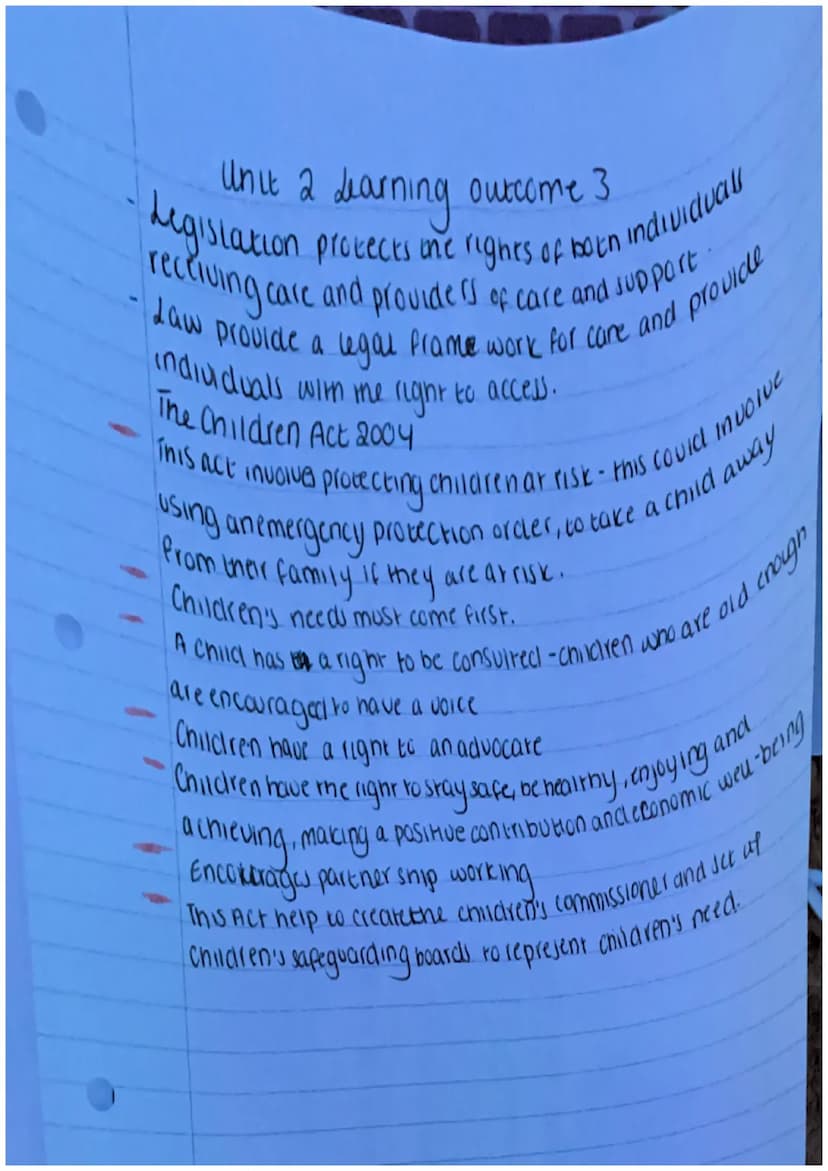 Unit 2 Learning outcome 3
- Legislation protects the rights of both individuals
receiving care and providers of care and support.
- Law provide a legal frame work for care and provide
individuals with the right to access.
The Children Act 2004
This act involves protecting children at risk - this could involve
using an emergency protection order, to take a child away
from their family if they are at risk.
Children's needs must come first.
A child has a right to be consulted - children who are old enough
are encouraged to have a voice
Children have a right to an advocate
Children have the right to stay safe, be healthy, enjoying and
achieving, making a positive contribution and economic well-being
Encourages partner ship working
This Act help to create the children's commissioner and set up
children's safeguarding boards to represent children's need.